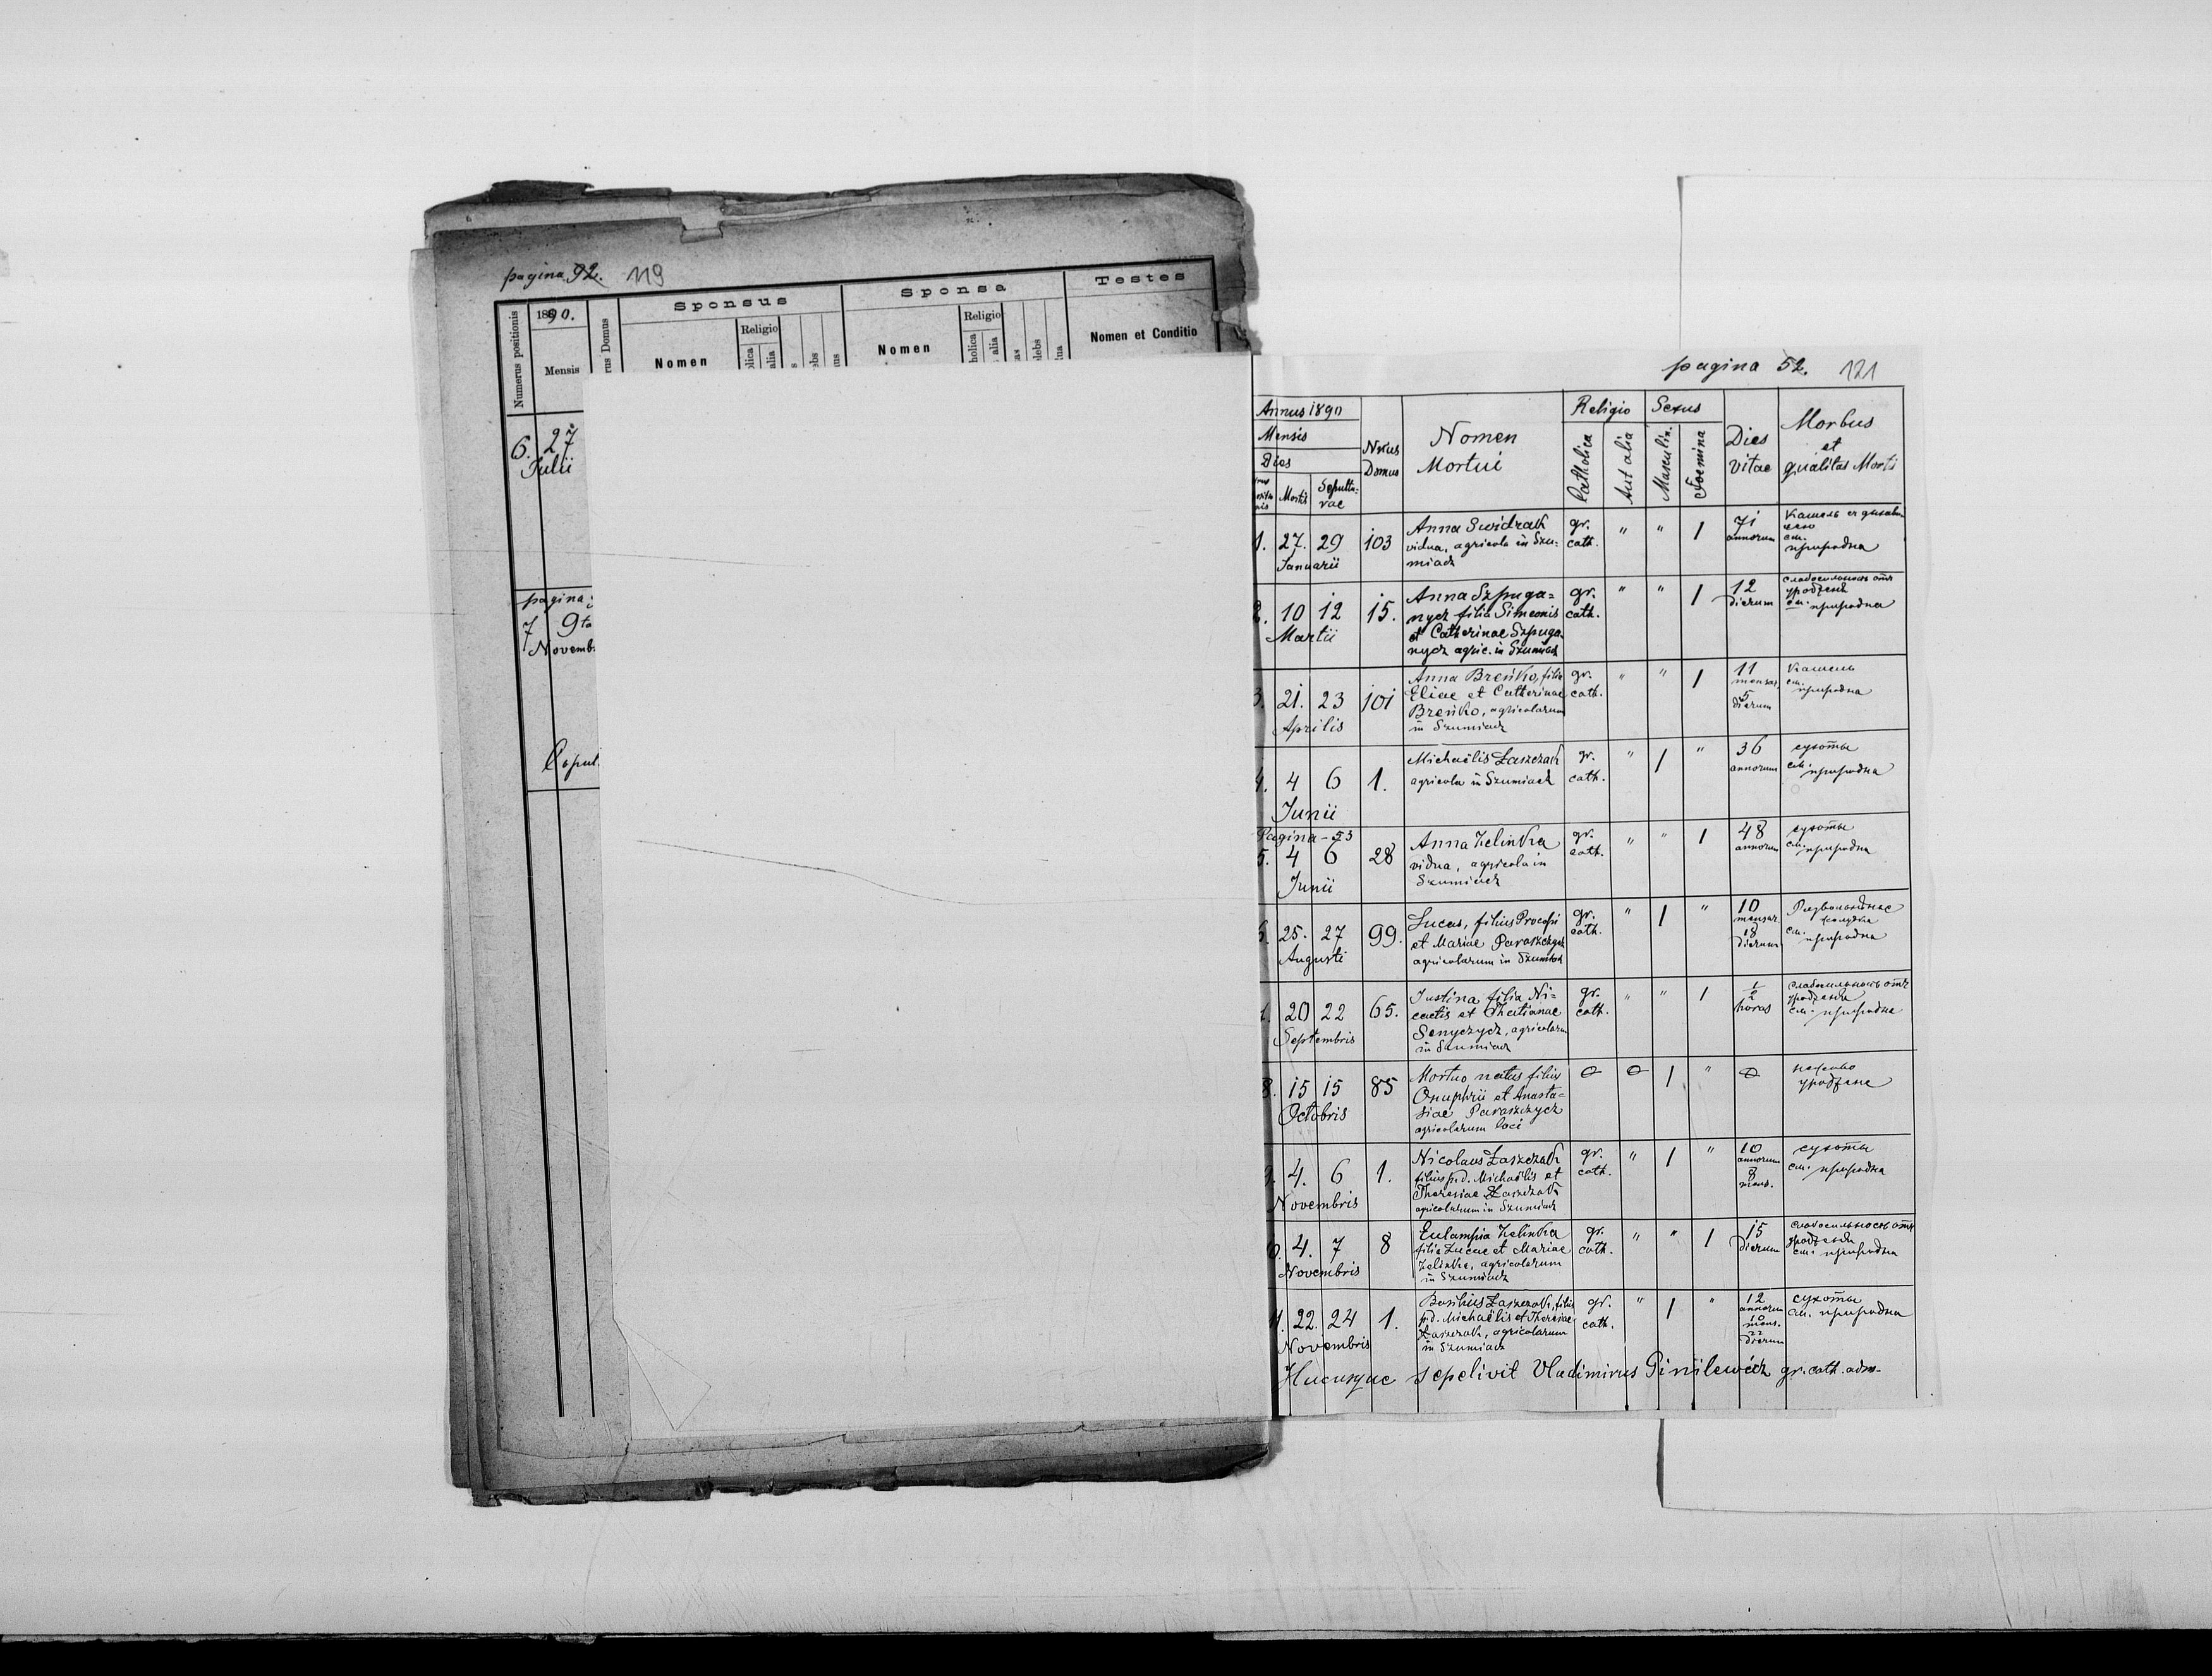 pagina 92. 119
Numerus positionis
1890.
Mensis
Sponsus
Nomen
Religio
alia
Sponsa
Nomen
Religio
alia
Testes
Nomen et Conditio
6. 27
Julii
pagina
7 9ta
Novemb
Copul
pagina 52. 121
Annus 1890
Mensis
Dies
Mortis
Sepultu-
rae
Nrus
Domus
Nomen
Mortui
Religio
Catholica
Aut alia
Sexus
Masculin.
Foemina
Dies
vitae
Morbus
et
qualitas Mortis
1. 27. 29 103
Januarii
Anna Swidrak
vidua, agricola in Szu-
miacz
gr.
cath.
" " 1
71
annorum
Кашель
см.
природна
2. 10 12 15.
Martii
Anna Szpuga-
nycz filia Simeonis
et Catherinae Szpuga-
nycz agric. in Szumiacz
gr.
cath.
" " 1
12
dierum
слабосильность отъ
уродженя
см. природна
3. 21. 23 101
Aprilis
Anna Breńko, filia
Eliae et Catherinae
Breńko, agricolarum
in Szumiacz
gr.
cath.
" " 1
11
mensar.
5
dierum
Кашель
см.
природна
4. 4 6 1.
Junii
Michaëlis Łaszczak
agricola in Szumiacz
gr.
cath.
" 1 "
36
annorum
сухоты
см. природна
Pagina - 53
5. 4 6 28
Junii
Anna Zelinka
vidua, agricola in
Szumiacz
gr.
cath.
" " 1
48
annorum
сухоты
см.
природна
6. 25. 27 99.
Augusti
Lucas, filius Procopi
et Mariae Paraszczycz
agricolarum in Szumiacz
gr.
cath.
" 1 "
10
mensar.
18
dierum
см.
природна
20 22 65.
Septembris
Justina filia Ni-
cetis et Thatianae
Senyczycz, agricolarum
in Szumiacz
gr.
cath.
" " 1
1/2
horas
слабосильность отъ
уродженя
см. природна
8. 15 15 85
Octobris
Mortuo natus filius
Onuphrii et Anasta-
siae Paraszczycz
agricolarum loci
1 "
неживо
уроджене
9. 4. 6 1.
Novembris
Nicolaus Łaszczak
filius p.d. Michaëlis et
Theresiae Łaszczak
agricolarum in Szumiacz
gr.
cath.
" 1 "
10
annorum
8
mens.
сухоты
см. природна
4. 7 8
Novembris
Eulampia Zelinka
filia Lucae et Mariae
Zelinka, agricolarum
in Szumiacz
gr.
cath.
" " 1
15
dierum
слабосильность отъ
уродженя
см. природна
11. 22. 24 1.
Novembris
Basilius Łaszczak, filius
p.d. Michaëlis et Theresiae
Łaszczak, agricolarum
in Szumiacz
gr.
cath.
" 1 "
12
annorum
10
mens.
22
dierum
сухоты
см. природна
Hucusque sepelivit Vladimirus Pinilewicz gr. cath. adm-